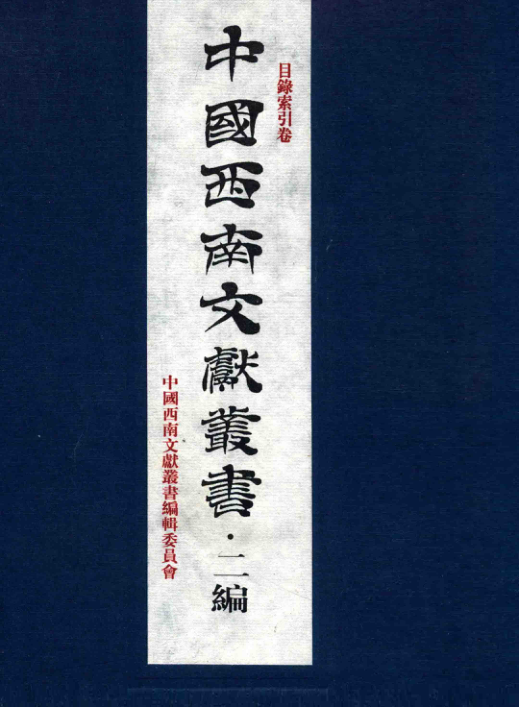 目錄索引卷
中國西南文獻叢書·二編
中國西南文獻叢書編輯委員會